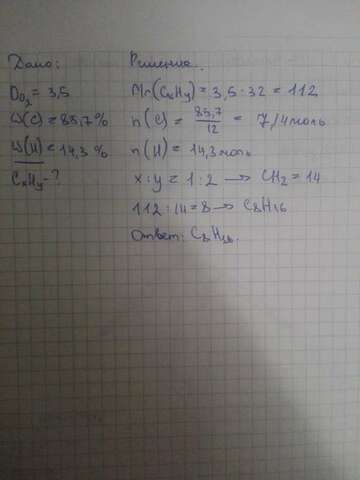 Дано:
D O₂ = 3,5
ω(C) = 85,7%
ω(H) = 14,3%
CₓHᵧ - ?
Решение.
Mr(CₓHᵧ) = 3,5 · 32 = 112
n(C) = 85,7/12 = 7,14 моль
n(H) = 14,3 моль
x : y = 1 : 2 → CH₂ = 14
112 : 14 = 8 → C₈H₁₆
Ответ: C₈H₁₆.